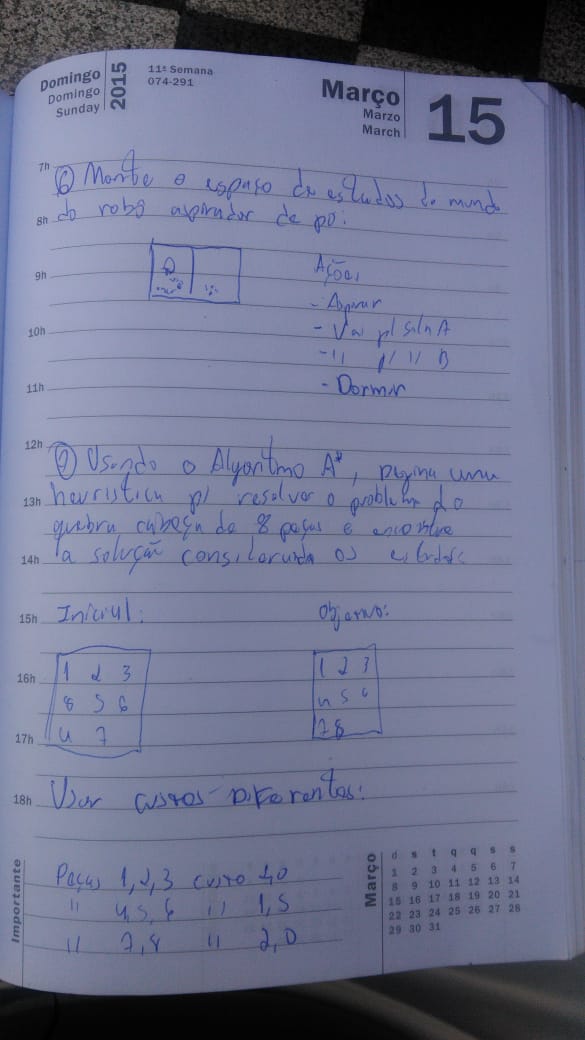 Domingo
Domingo
Sunday
2015
11ª Semana
074-291
Março
Marzo
March
15
7h
⑥ Monte o espaço de estados do mundo
8h do robô aspirador de pó:
9h
Ações
- Aspirar
10h
- Vai p/ sala A
- 11 p/ 11 B
11h
- Dormir
12h
⑦ Usando o Algoritmo A*, defina uma
13h heurística p/ resolver o problema do
quebra cabeça de 8 peças e encontre
14h a solução considerando os estados
15h Inicial: Objetivo:
1 2 3 1 2 3
16h
8 5 6 4 5 6
4 7 7 8
17h
18h Usar custos diferentes:
Importante
Peças 1,2,3 custo 1,0
11 4,5,6 11 1,5
11 7,8 11 2,0
Março
d s t q q s s
1 2 3 4 5 6 7
8 9 10 11 12 13 14
15 16 17 18 19 20 21
22 23 24 25 26 27 28
29 30 31